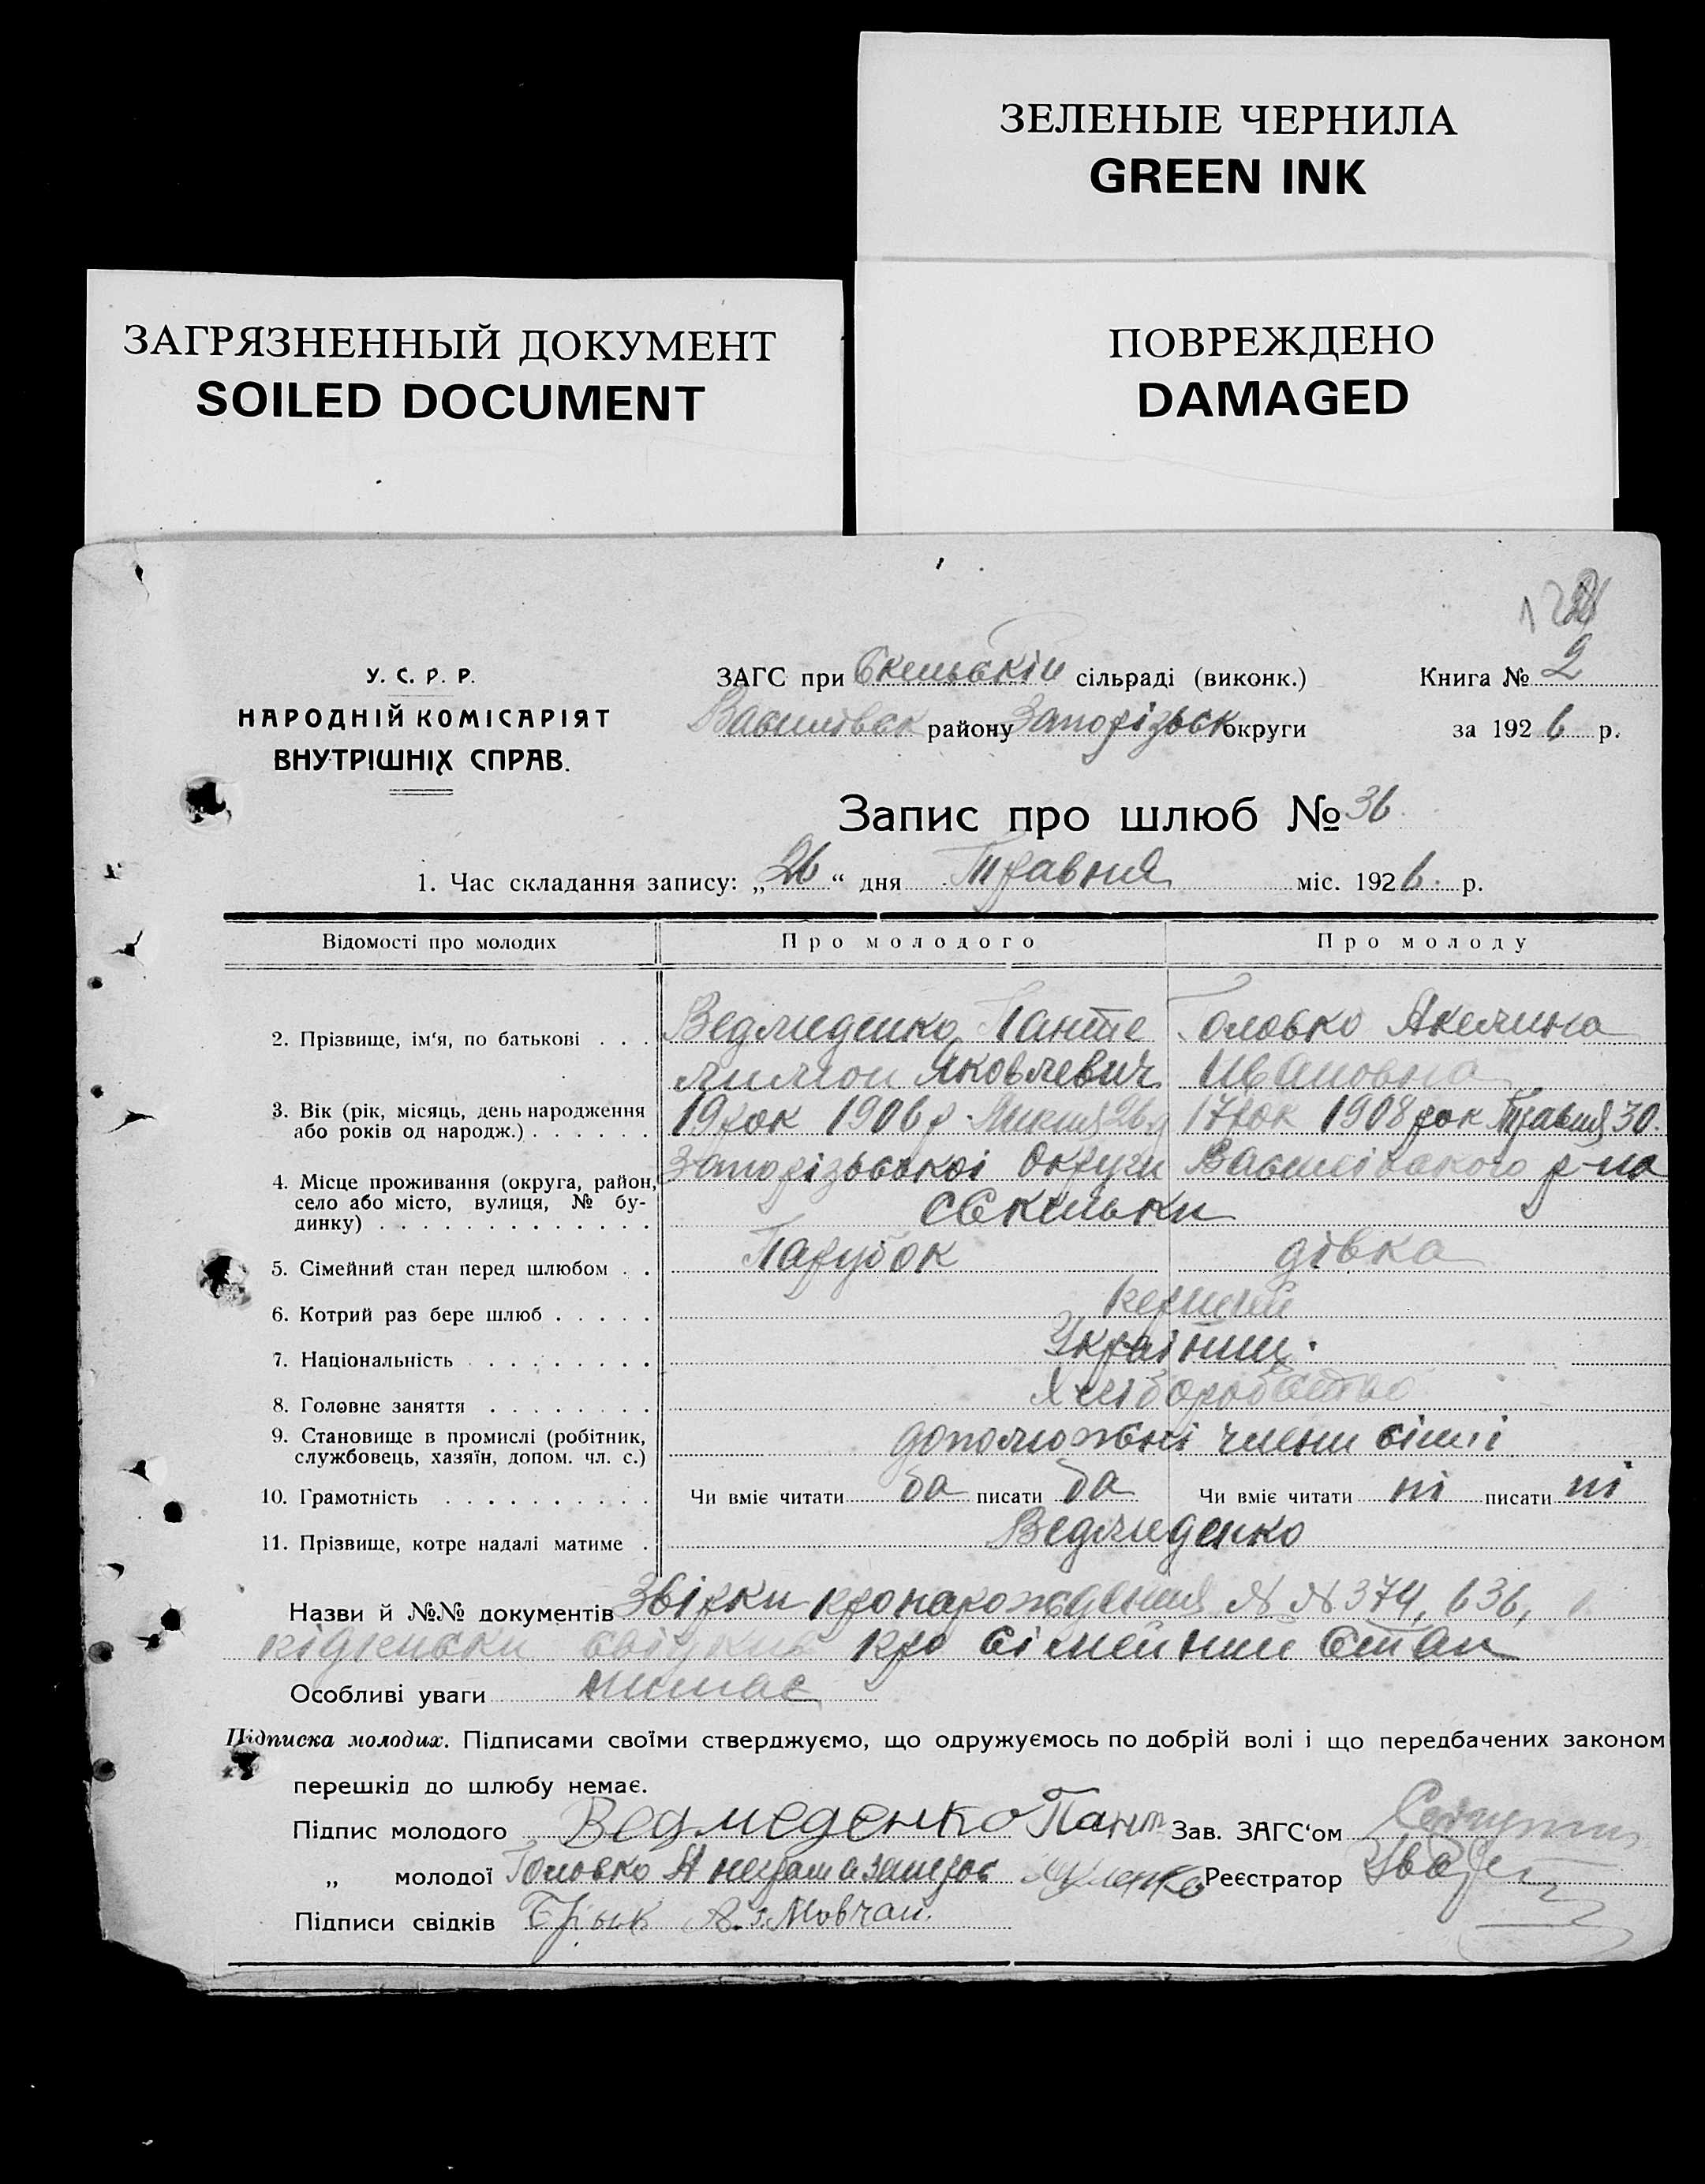 ЗЕЛЕНЫЕ ЧЕРНИЛА
GREEN INK
ЗАГРЯЗНЕННЫЙ ДОКУМЕНТ
SOILED DOCUMENT
ПОВРЕЖДЕНО
DAMAGED
У. С. Р. Р.
НАРОДНІЙ КОМІСАРІЯТ
ВНУТРІШНІХ СПРАВ.
ЗАГС при Скельскій сільраді (виконк.)
Василівськ району Запорізьск округи
Книга № 2
за 1926 р.
Запис про шлюб № 36
1. Час складання запису: „26“ дня Травня міс. 1926. р.
Відомості про молодих Про молодого Про молоду
2. Прізвище, ім'я, по батькові . . . Ведмеденко Панте Головко Акелина
лимон Яковлевич Ивановна
3. Вік (рік, місяць, день народження
або років од народж.) . . . . . . 19 рок 1906 р. 26 17 рок 1908 рок Травня 30.
4. Місце проживання (округа, район,
село або місто, вулиця, № бу-
динку) . . . . . . . . . . . . . Запорізьської Округи Василівського р-на
с Скельки
5. Сімейний стан перед шлюбом . . Парубок дівка
6. Котрий раз бере шлюб . . . . . перший
7. Національність . . . . . . . . . Українци.
8. Головне заняття . . . . . . . . Хліборобство
9. Становище в промислі (робітник,
службовець, хазяїн, допом. чл. с.) допоможні члени сімї
10. Грамотність . . . . . . . . . . Чи вміє читати да писати да Чи вміє читати ні писати ні
11. Прізвище, котре надалі матиме . Ведмеденко
Назви й №№ документів Звірки про нарождения N N 374, 636,
про сімейний стан
Особливі уваги немає
Підписка молодих. Підписами своїми стверджуємо, що одружуємось по добрій волі і що передбачених законом
перешкід до шлюбу немає.
Підпис молодого Ведмеденко Пант Зав. ЗАГС'ом
„ молодої Головко А Реєстратор
Підписи свідків Мовчан.